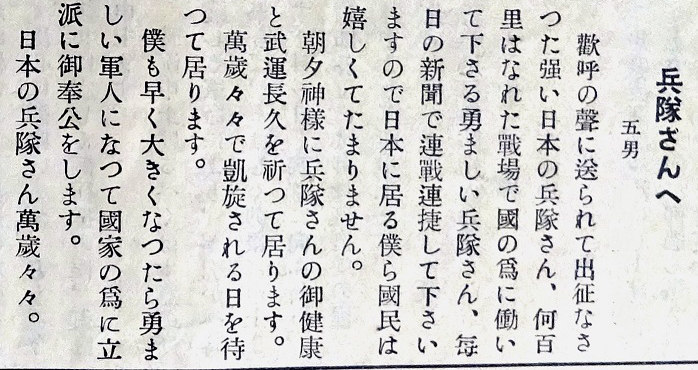 兵隊さんへ
五男
歡呼の聲に送られて出征なさ
つた强い日本の兵隊さん、何百
里はなれた戰場で國の爲に働い
て下さる勇ましい兵隊さん、每
日の新聞で連戰連捷して下さい
ますので日本に居る僕ら國民は
嬉しくてたまりません。
朝夕神樣に兵隊さんの御健康
と武運長久を祈つて居ります。
萬歲々々で凱旋される日を待
つて居ります。
僕も早く大きくなつたら勇ま
しい軍人になつて國家の爲に立
派に御奉公をします。
日本の兵隊さん萬歲々々。